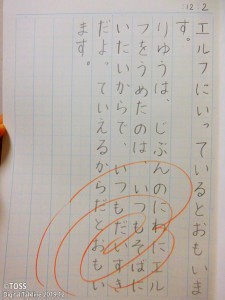 12.2
エルフにいっているとおもいま
す。
りゆうは、じぶんのにわにエル
フをうめたのは、いつもそばに
いたいからで、いつもだいすき
だよ、ていえるからだとおもい
ます。
©TOSS